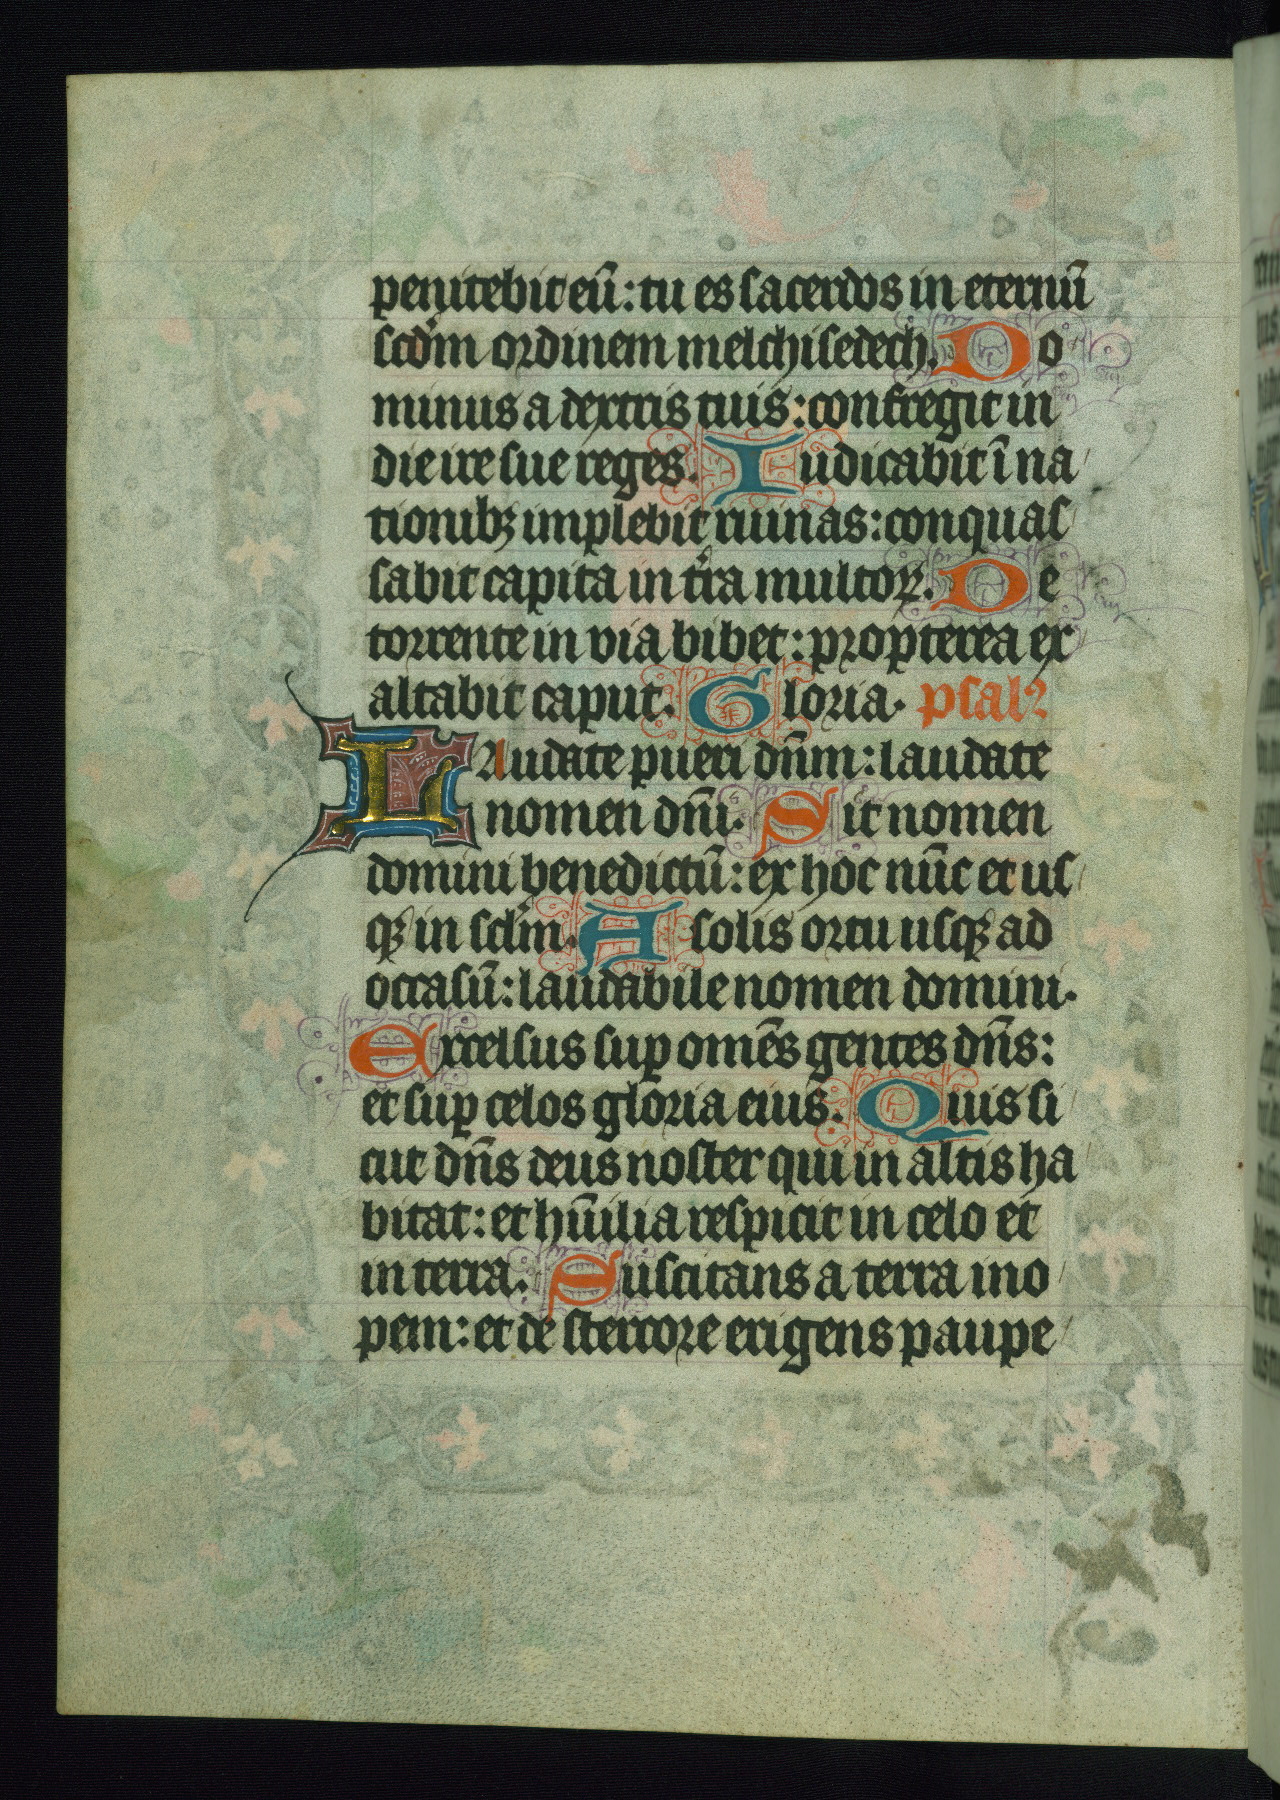 penitebit eū: tu es sacerdos in eternū
scd̄m ordinem melchisedech. Do
minus a dextris tuis: confregit in
die ire sue reges. Iudicabit ī na
tionibꝫ implebit ruinas: conquas
sabit capita in t̄ra multoꝝ. De
torrente in via bibet: propterea ex
altabit caput. Gloria. psalꝫ
Laudate pueri dn̄m: laudate
nomen dn̄i. Sit nomen
domini benedictū: ex hoc nūc et us
qꝫ in sclm̄. A solis ortu usqꝫ ad
occasū: laudabile nomen domini.
Excelsus suꝑ omēs gentes dn̄s:
et suꝑ celos gloria eius. Quis si
cut dn̄s deus noster qui in altis ha
bitat: et hūilia respicit in celo et
in terra. Suscitans a terra ino
pem: et de stercore erigens paupe